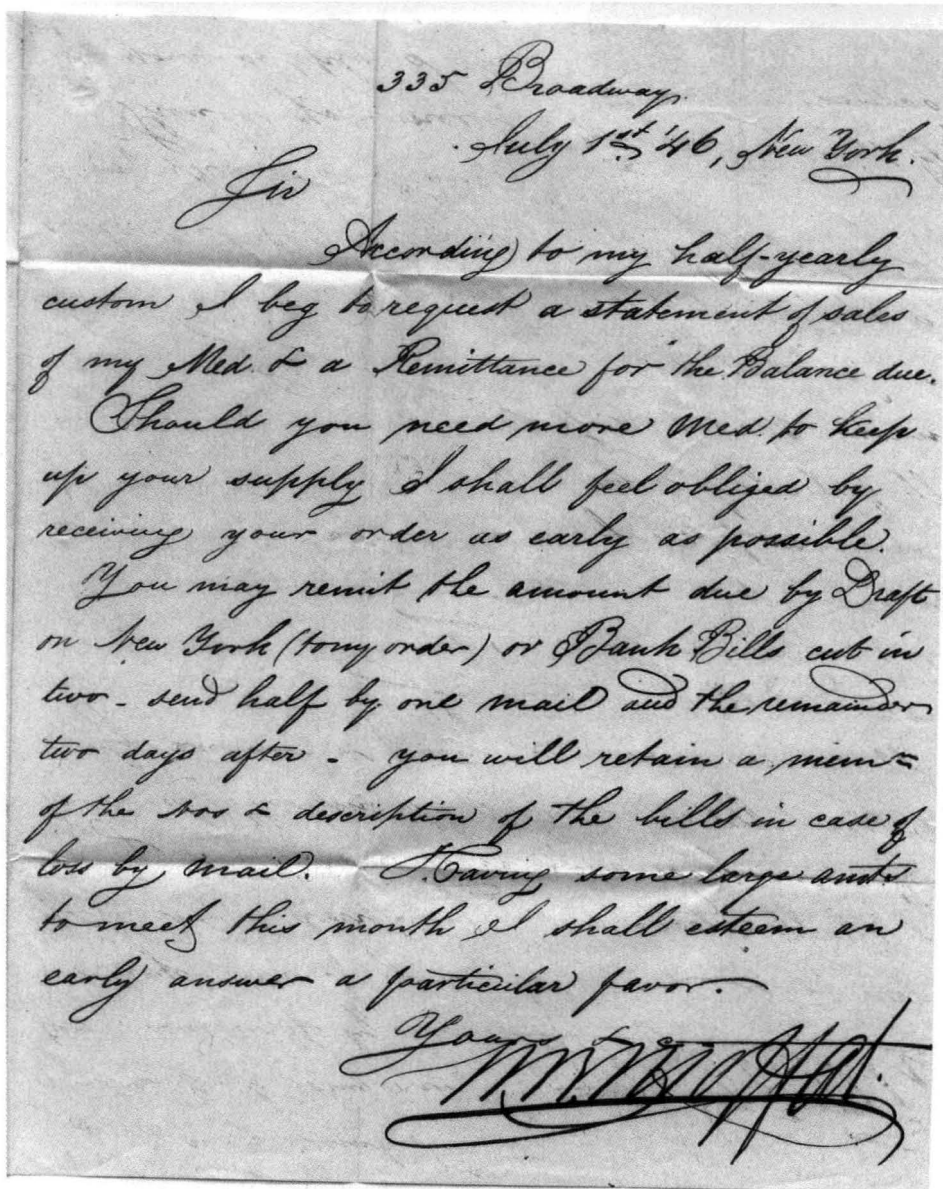 335 Broadway.
July 1st '46, New York.
Sir
According to my half-yearly
custom I beg to request a statement of sales
of my Med. & a Remittance for the Balance due.
Should you need more Med. to keep
up your supply I shall feel obliged by
receiving your order as early as possible.
You may remit the amount due by Draft
on New York (to my order) or Bank Bills cut in
two - send half by one mail and the remainder
two days after - you will retain a mem=
of the Nos & description of the bills in case of
loss by mail. Having some large amts
to meet this month I shall esteem an
early answer a particular favor.
Yours &c
Wm. Moffat.